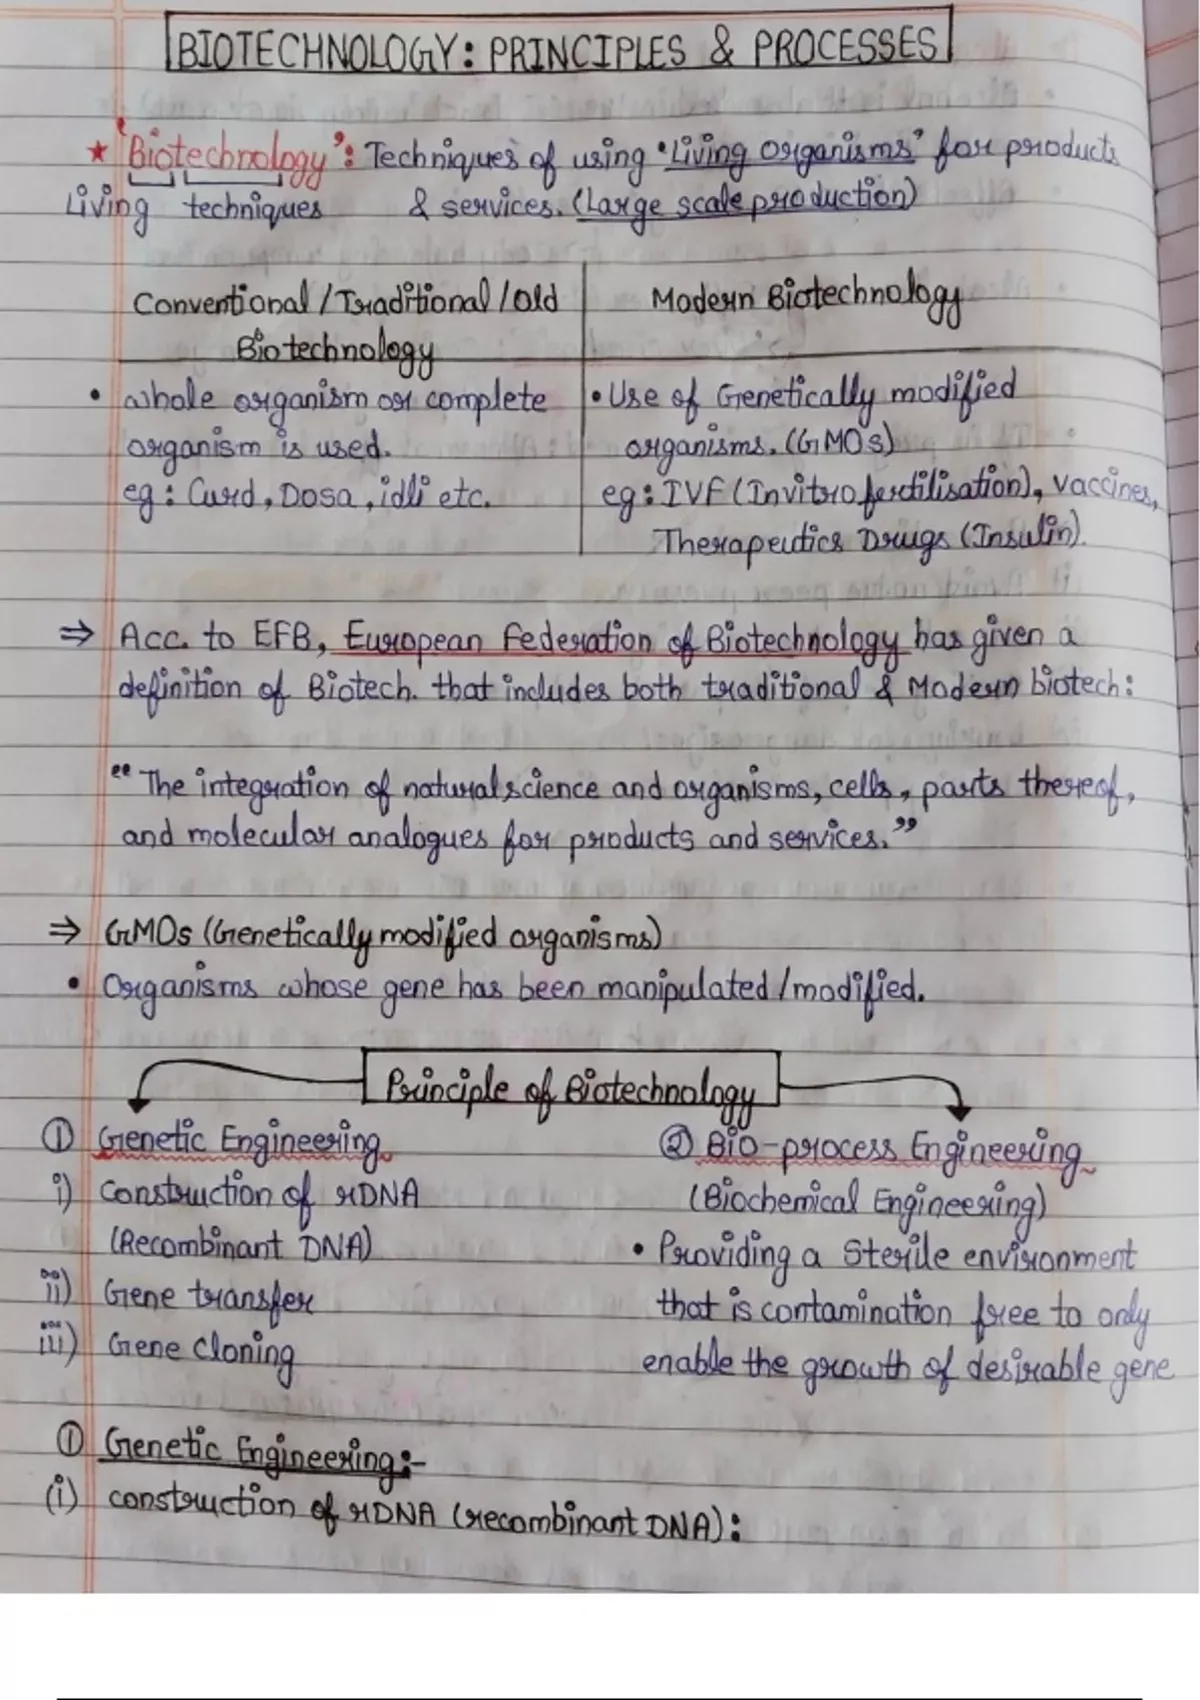 BIOTECHNOLOGY: PRINCIPLES & PROCESSES
★ 'Biotechnology': Techniques of using 'Living organisms' for products
Living techniques & services. (Large scale production)
Conventional / Traditional / Old
Biotechnology
• whole organism or complete
organism is used.
eg: Curd, Dosa, idli etc.
Modern Biotechnology
• Use of Genetically modified
organisms. (GMOs)
eg: IVF (Invitro fertilisation), vaccines,
Therapeutics Drugs (Insulin).
⇒ Acc. to EFB, European Federation of Biotechnology has given a
definition of Biotech. that includes both traditional & Modern biotech:
"The integration of natural science and organisms, cells, parts thereof,
and molecular analogues for products and services."
⇒ GMOs (Genetically modified organisms)
• Organisms whose gene has been manipulated / modified.
Principle of Biotechnology
① Genetic Engineering
i) Construction of rDNA
(Recombinant DNA)
ii) Gene transfer
iii) Gene cloning
② Bio-process Engineering
(Biochemical Engineering)
• Providing a Sterile environment
that is contamination free to only
enable the growth of desirable gene
① Genetic Engineering:-
(i) construction of rDNA (recombinant DNA):